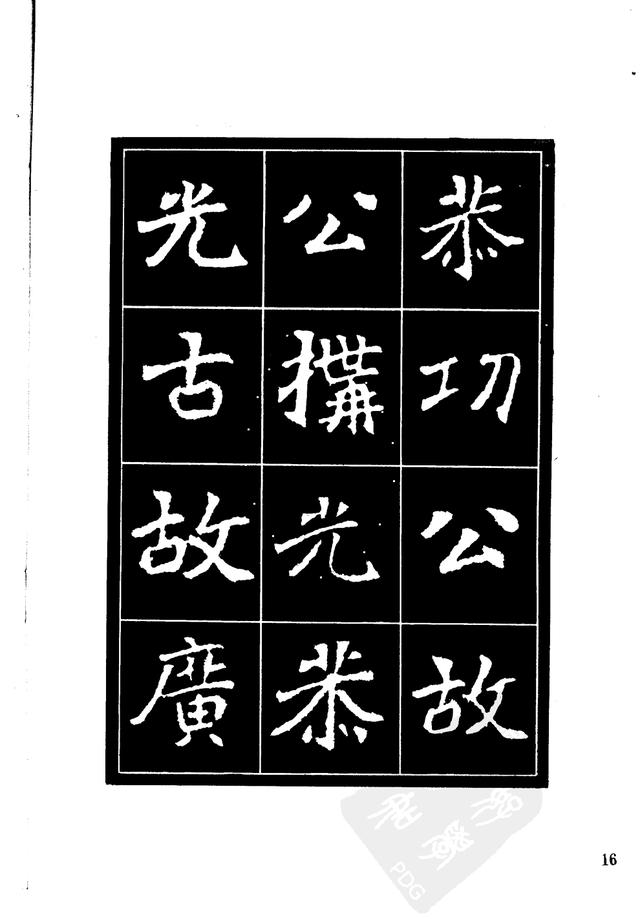 恭功公故
公搆光恭
光古故廣
16
PDG